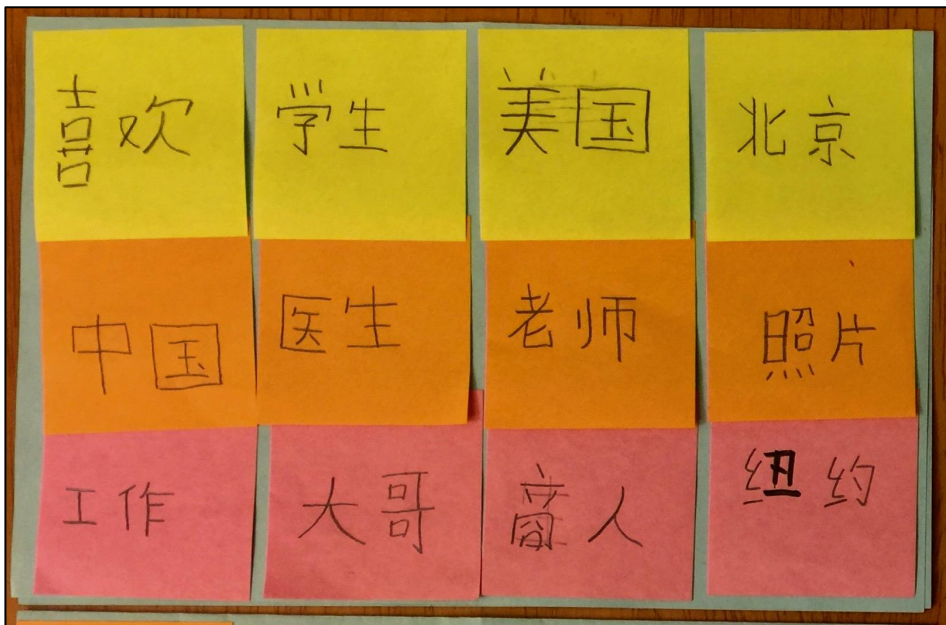 喜欢 学生 美国 北京
中国 医生 老师 照片
工作 大哥 商人 纽约